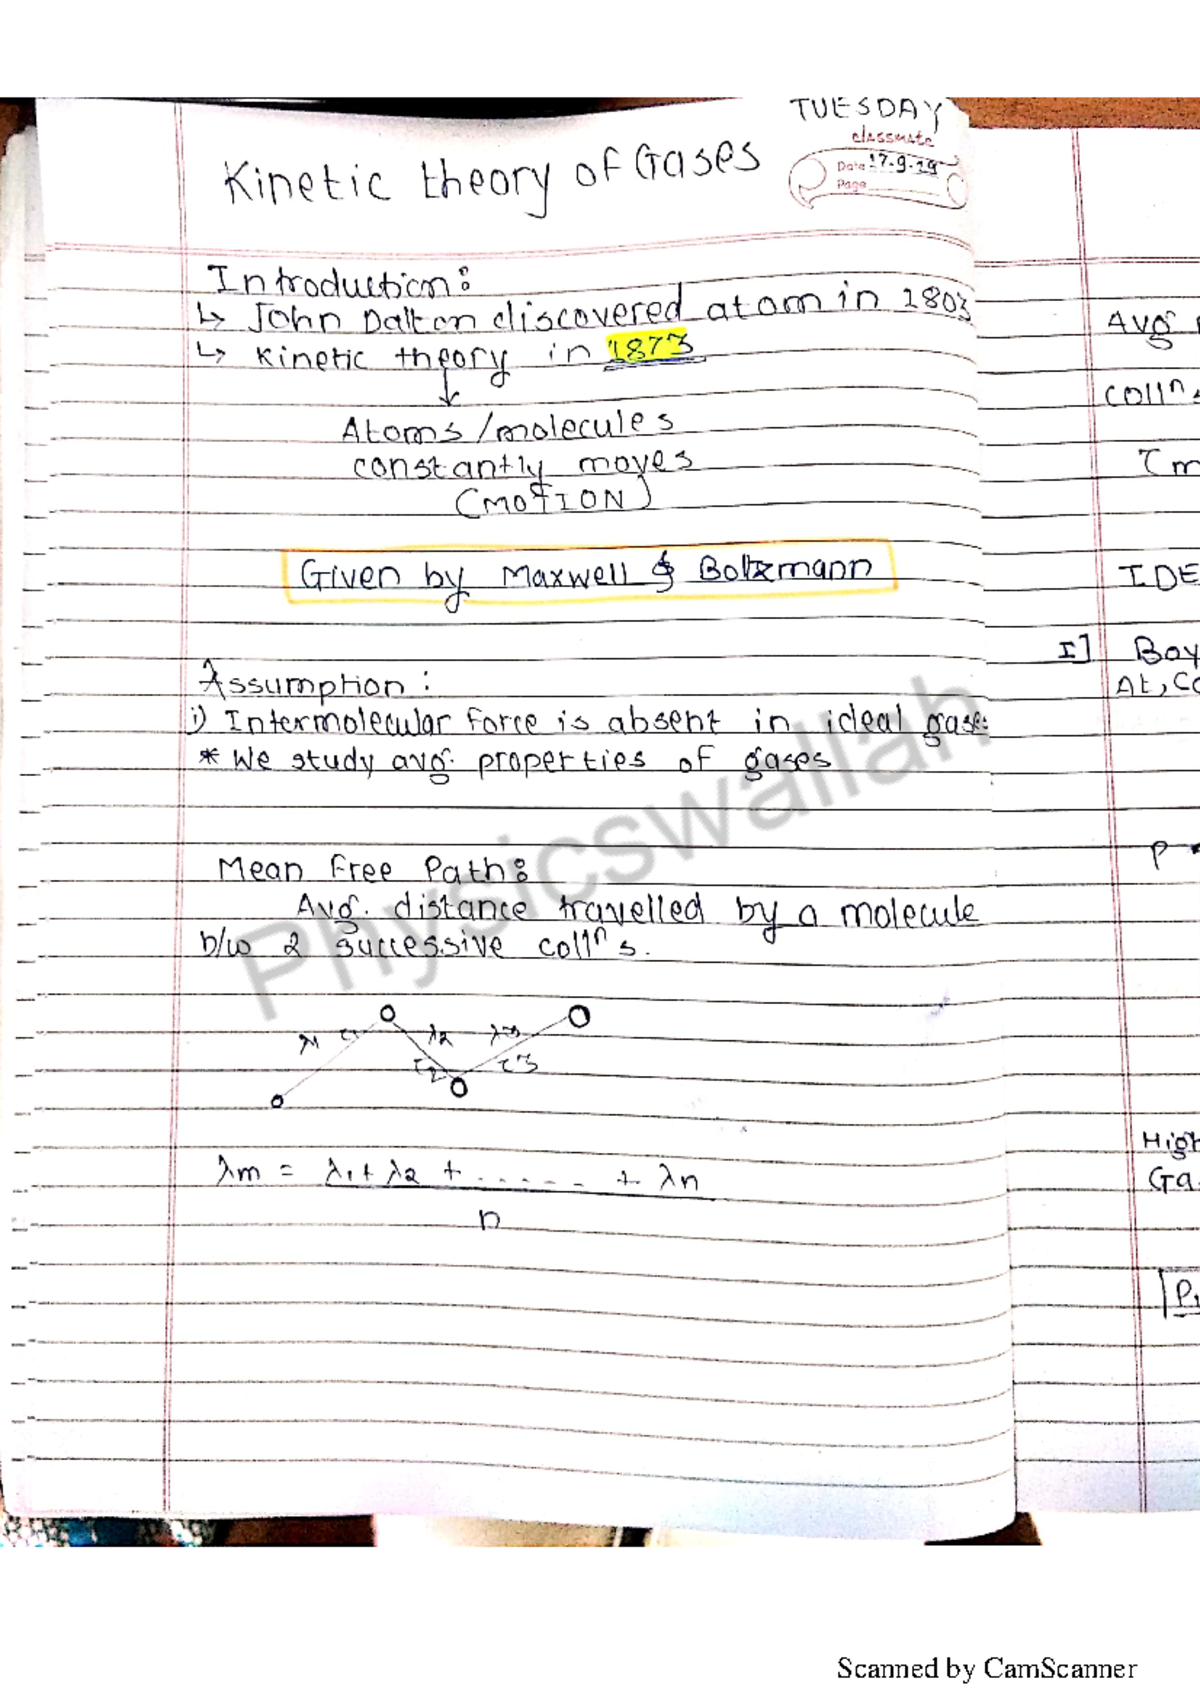 TUESDAY
classmate
Date 17-9-19
Page
Kinetic theory of Gases
Introduction:
↳ John Dalton discovered atom in 1803
↳ Kinetic theory in 1873
↓
Atoms/molecules
constantly moves
(MOTION)
Given by Maxwell & Boltzmann
Assumption:
i) Intermolecular force is absent in ideal gases
* We study avg. properties of gases
Mean Free Path:
Avg. distance travelled by a molecule
b/w 2 successive collⁿs.
λ1 τ1 λ2 λ3
τ2 τ3
λm = λ1 + λ2 + ...... + λn
n
Avg
collⁿs
τm
IDE
I] Boy
At, Co
P
High
Ga
P1
Physicswallah
Scanned by CamScanner